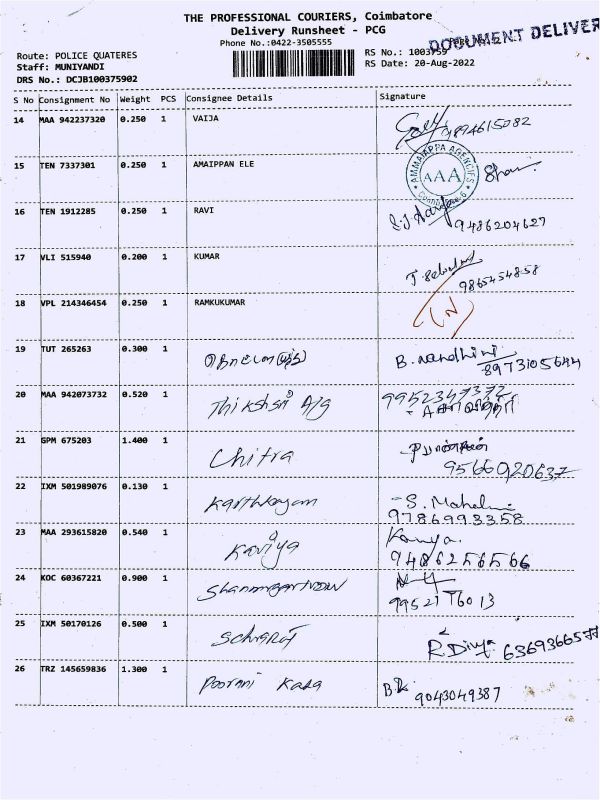 THE PROFESSIONAL COURIERS, Coimbatore
Delivery Runsheet - PCG
Phone No.:0422-3505555
DOCUMENT DELIVER
Route: POLICE QUATERES
Staff: MUNIYANDI
DRS No.: DCJB100375902
RS No.: 1003759
RS Date: 20-Aug-2022
S No Consignment No Weight PCS Consignee Details Signature
14 MAA 942237320 0.250 1 VAIJA
15 TEN 7337301 0.250 1 AMAIPPAN ELE
AMMAIAPPA AGENCIES
AAA
16 TEN 1912285 0.250 1 RAVI
9486204627
17 VLI 515940 0.200 1 KUMAR
9865454858
18 VPL 214346454 0.250 1 RAMKUKUMAR
(N)
19 TUT 265263 0.300 1 B. nandhini
8973105644
20 MAA 942073732 0.520 1 Thikshsri A/g 9952347372
21 GPM 675203 1.400 1 Chitra
9566020637
22 IXM 501989076 0.130 1 S. Mahalmi
9786993358
23 MAA 293615820 0.540 1 Kaviya Kanya.
9486256566
24 KOC 60367221 0.900 1
99521 76013
25 IXM 50170126 0.500 1 R Divya 6369366577
26 TRZ 145659836 1.300 1 Poorani Kada B.R 9043049387